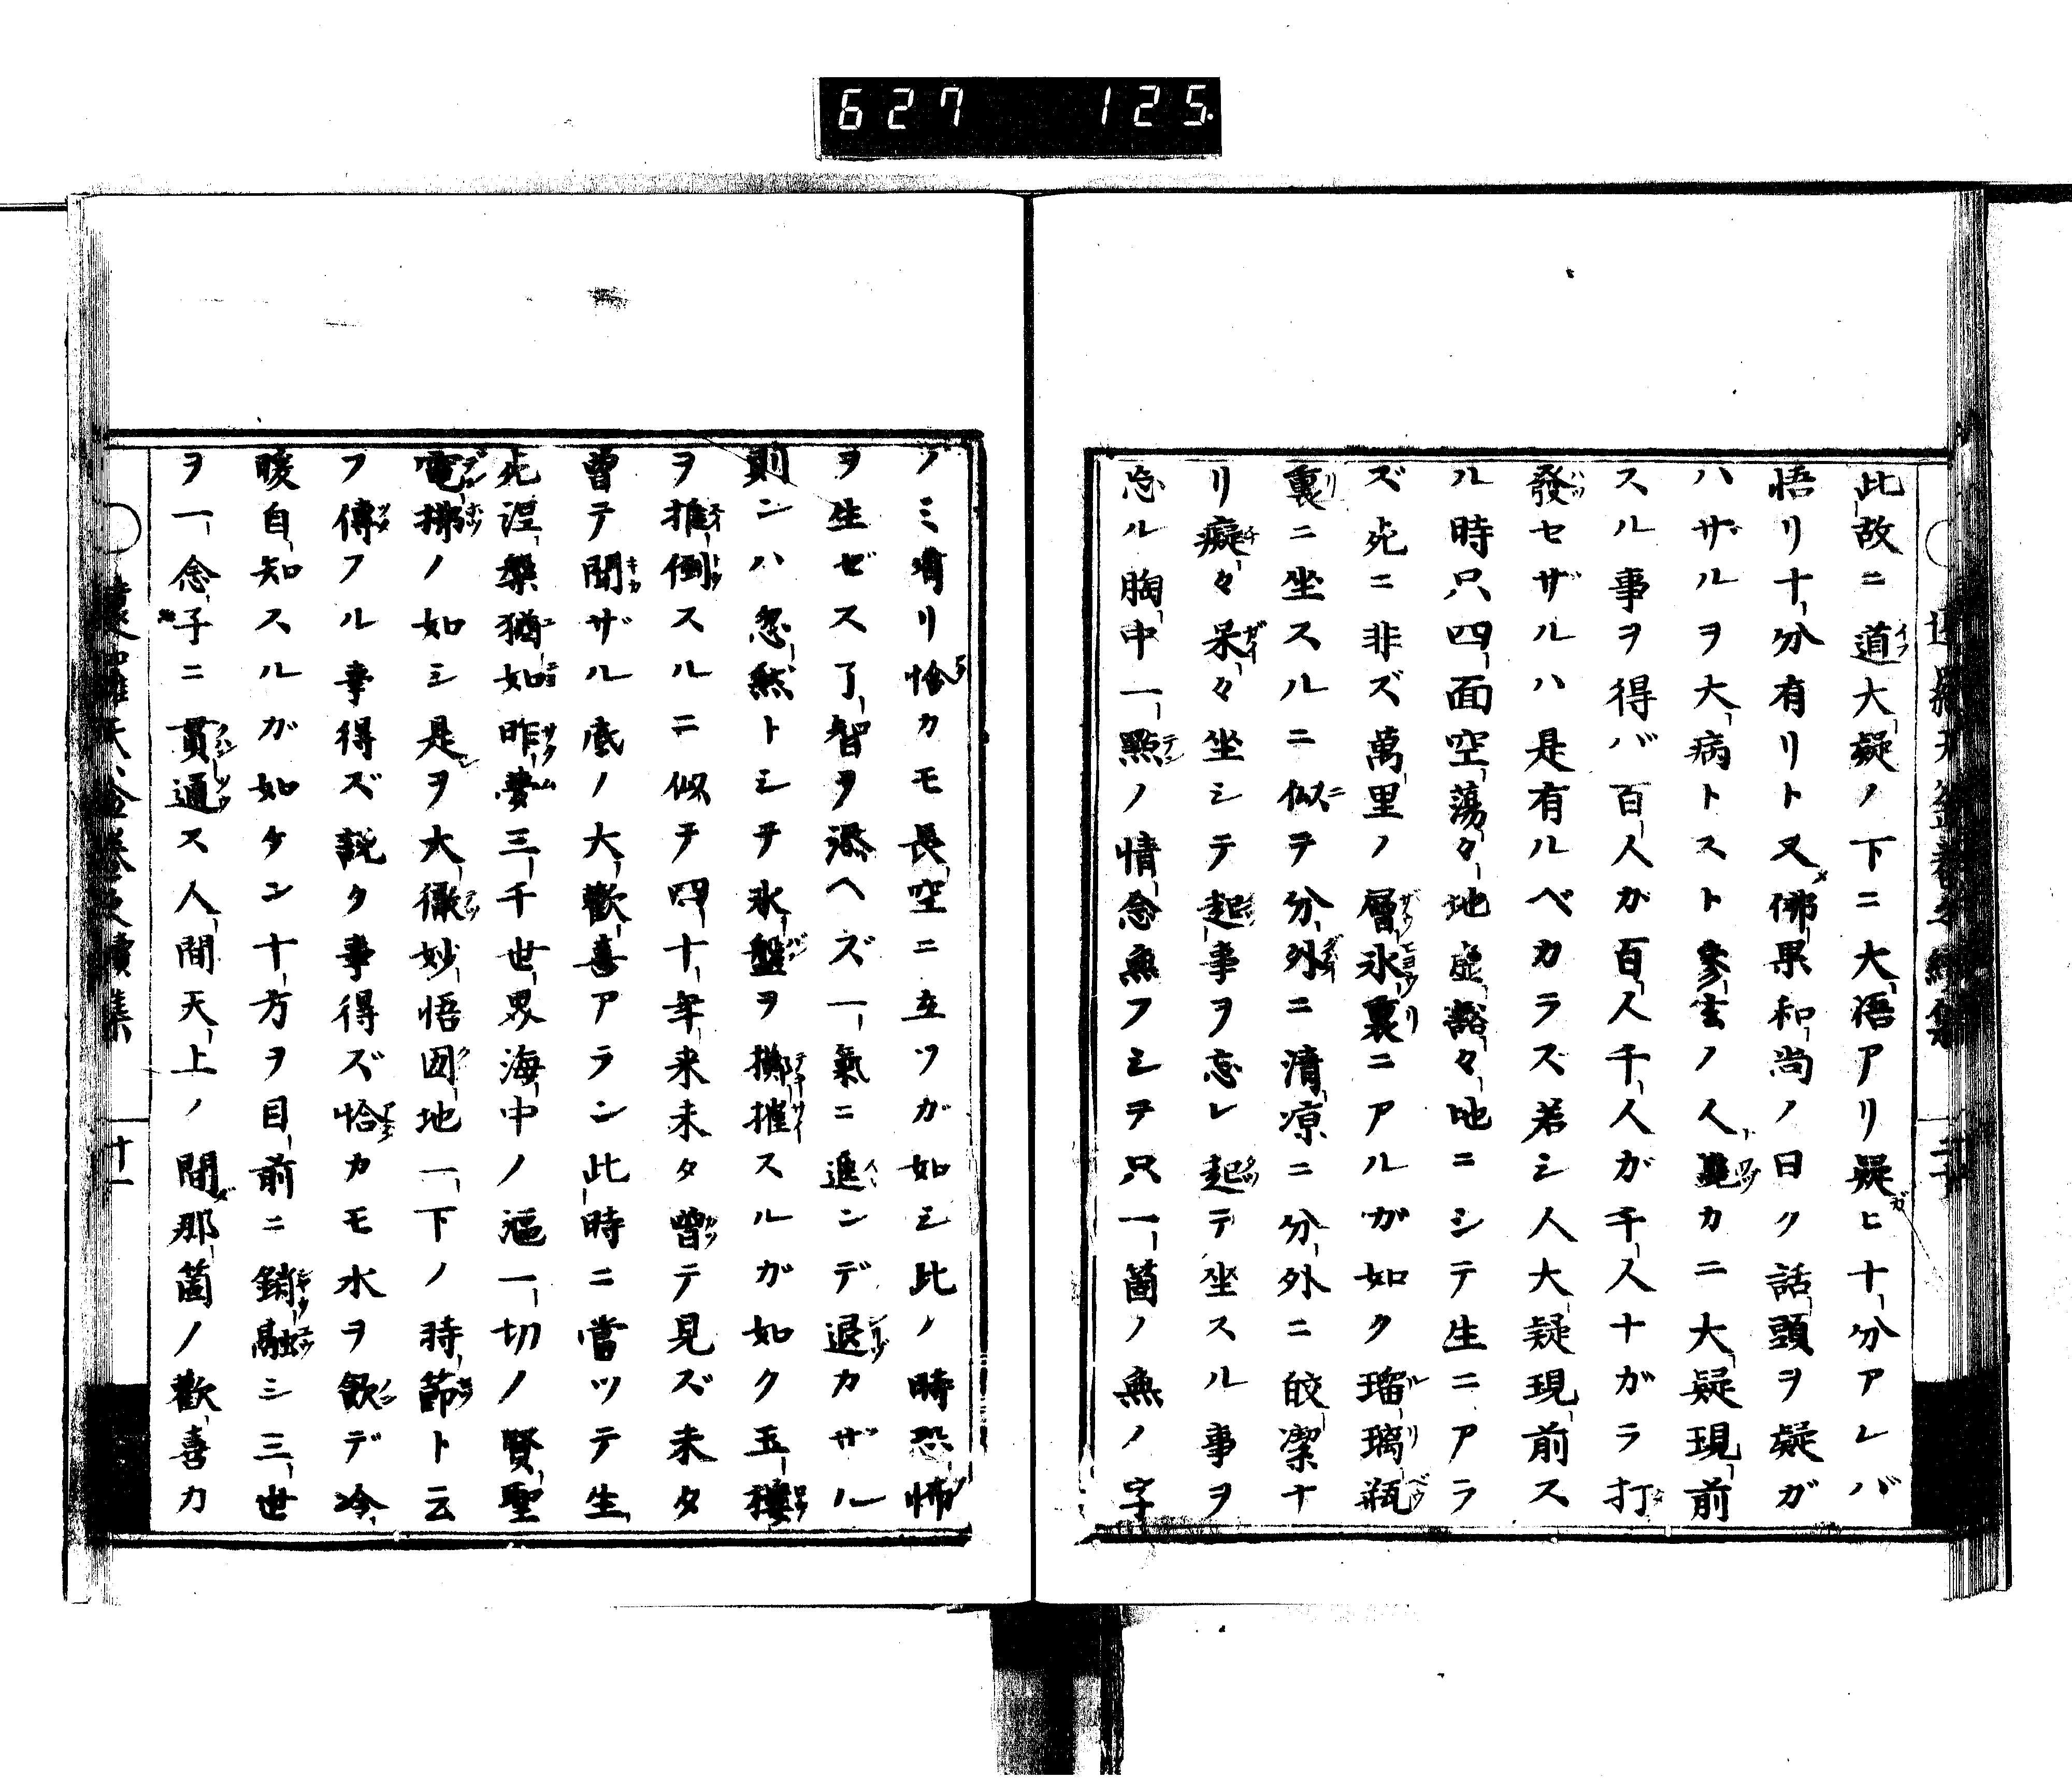 627 125
此故ニ道大疑ノ下ニ大悟アリ疑ヒ十分アレバ
悟リ十分有リト又佛果和尚ノ曰ク話頭ヲ疑ガ
ハザルヲ大病トスト參玄ノ人纔カニ大疑現前
スル事ヲ得バ百人ガ百人千人ガ千人ナガラ打
發セザルハ是有ルベカラズ若シ人大疑現前ス
ル時只四面空蕩々地虛豁々地ニシテ生ニアラ
ズ死ニ非ズ萬里ノ層氷裏ニアルガ如ク瑠璃瓶
裏ニ坐スルニ似テ分外ニ清凉ニ分外ニ皎潔ナ
リ癡々呆々坐シテ起事ヲ忘レ起テ坐スル事ヲ
忘ル胸中一點ノ情念無フシテ只一箇ノ無ノ字
ノミ有リ恰カモ長空ニ立ツガ如シ此ノ時恐怖
ヲ生ゼス了智ヲ添ヘズ一氣ニ進ンデ退カザル
則ンハ忽然トシテ氷盤ヲ擲摧スルガ如ク玉樓
ヲ推倒スルニ似テ四十年来未タ曽テ見ズ未タ
曽テ聞ザル底ノ大歡喜アラン此時ニ當ツテ生
死涅槃猶如昨夢三千世界海中ノ漚一切ノ賢聖
電拂ノ如シ是ヲ大徹妙悟囡地一下ノ時節ト云
フ傳フル事得ズ説ク事得ズ恰カモ水ヲ飲デ冷
暖自知スルガ如タン十方ヲ目前ニ銷融シ三世
ヲ一念子ニ貫通ス人間天上ノ間那箇ノ歡喜カ
十一